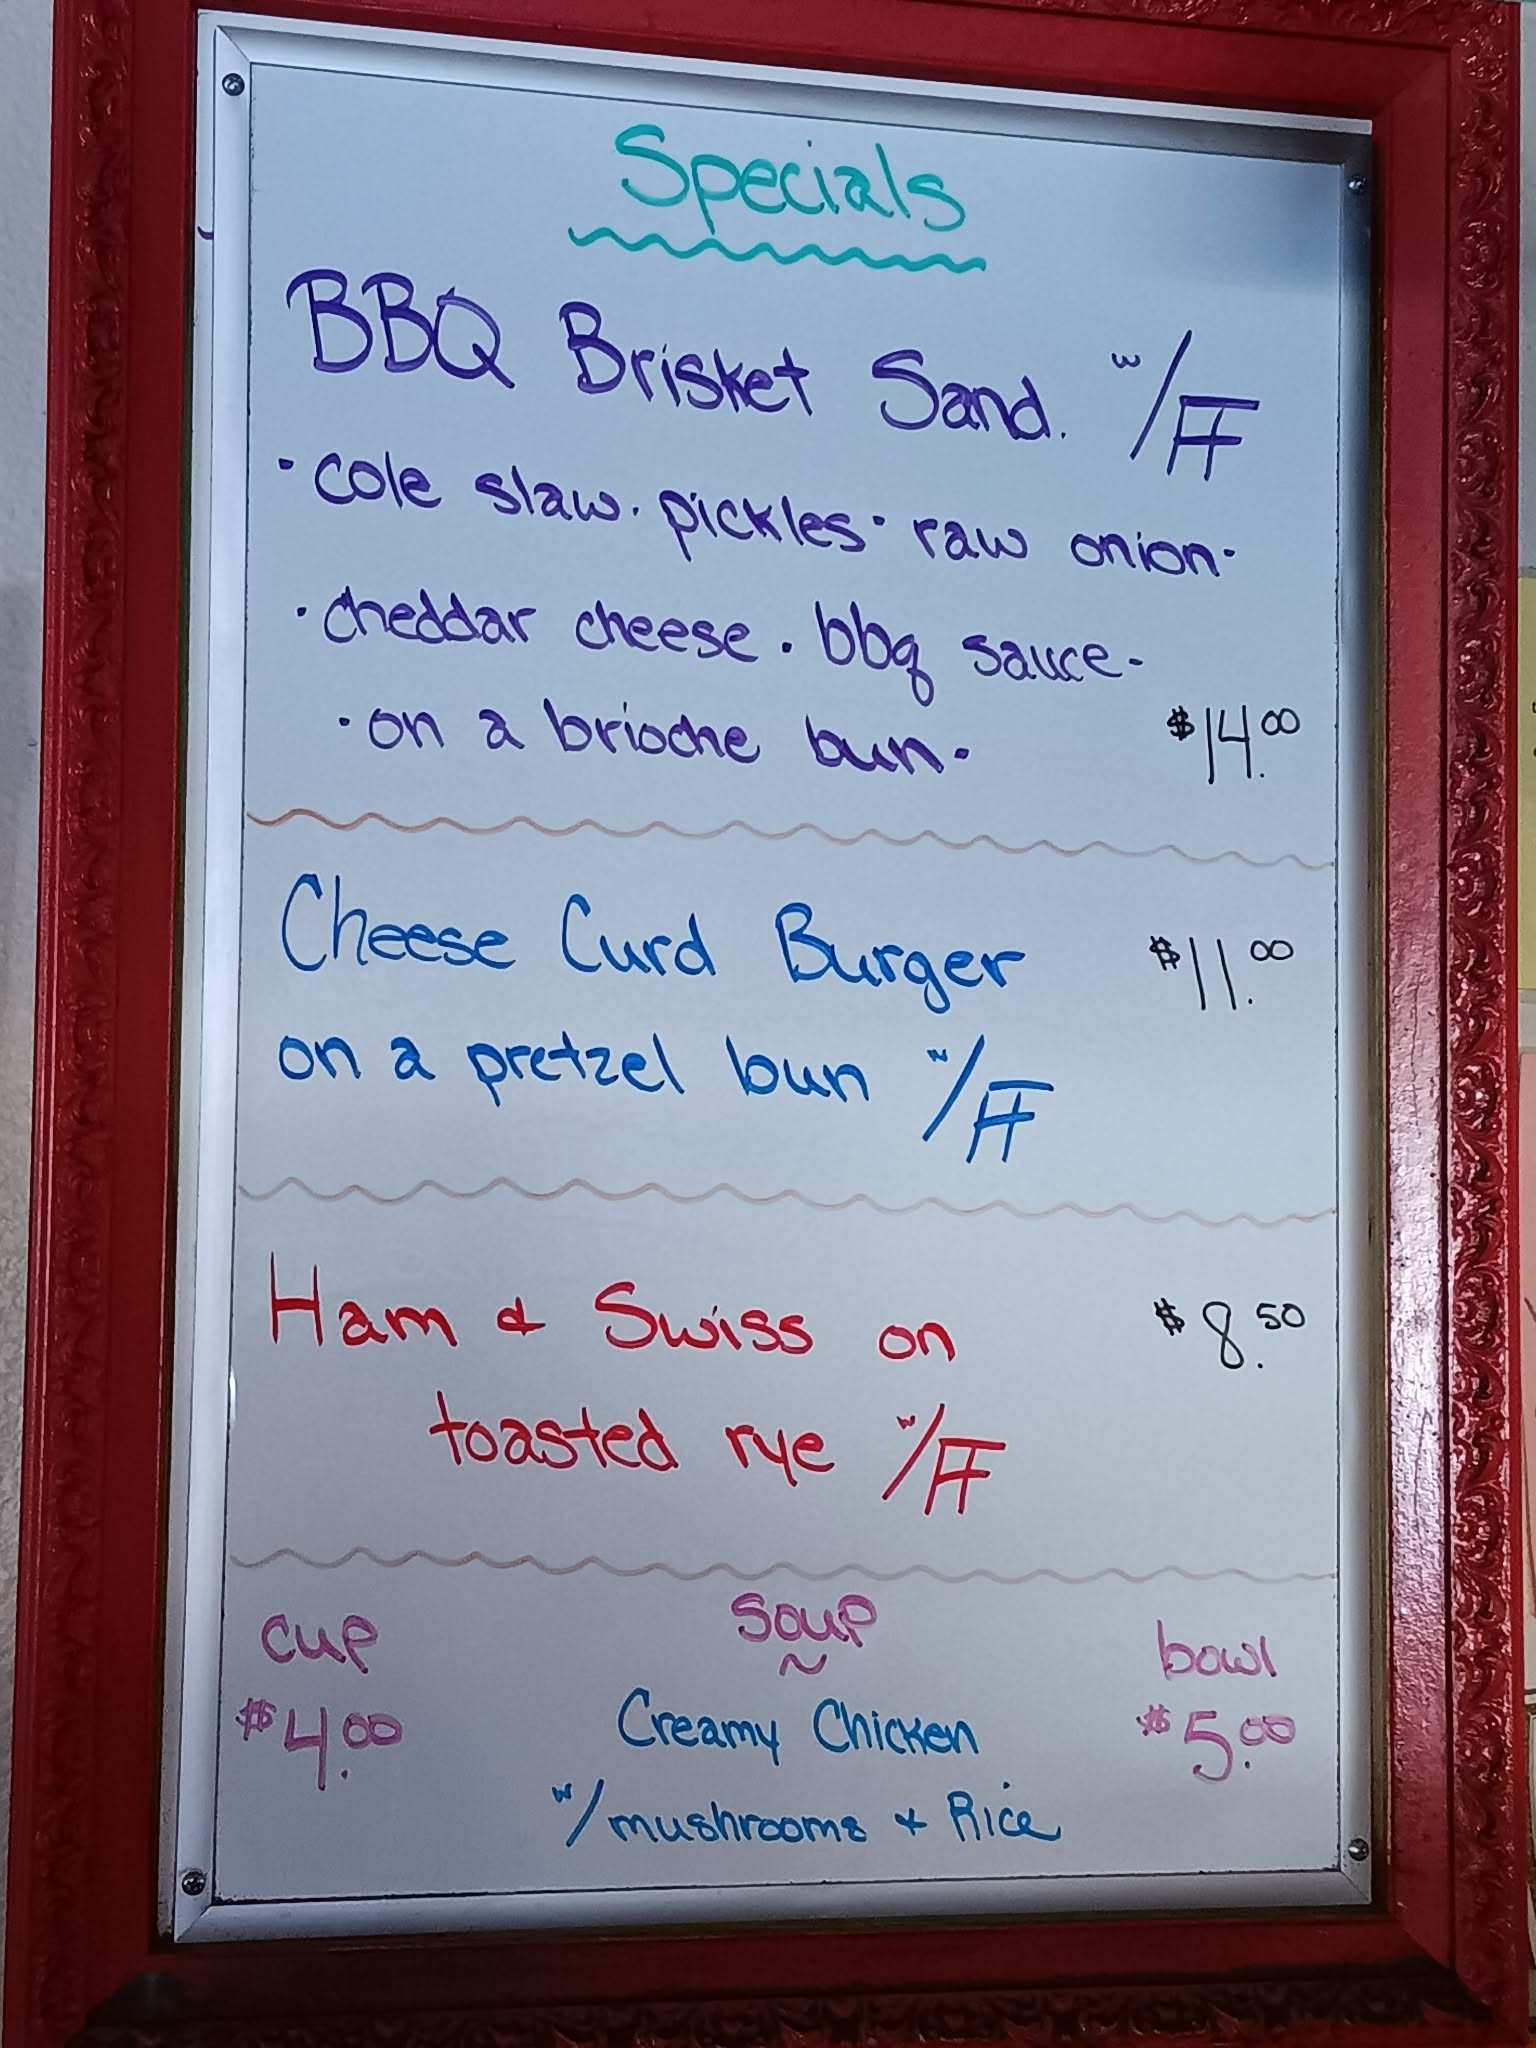 Specials
BBQ Brisket Sand. w/FF
· cole slaw · pickles · raw onion ·
· cheddar cheese · bbq sauce -
· on a brioche bun · $14.00
Cheese Curd Burger $11.00
on a pretzel bun w/FF
Ham & Swiss on $8.50
toasted rye w/FF
cup soup bowl
$4.00 Creamy Chicken $5.00
w/mushrooms & Rice